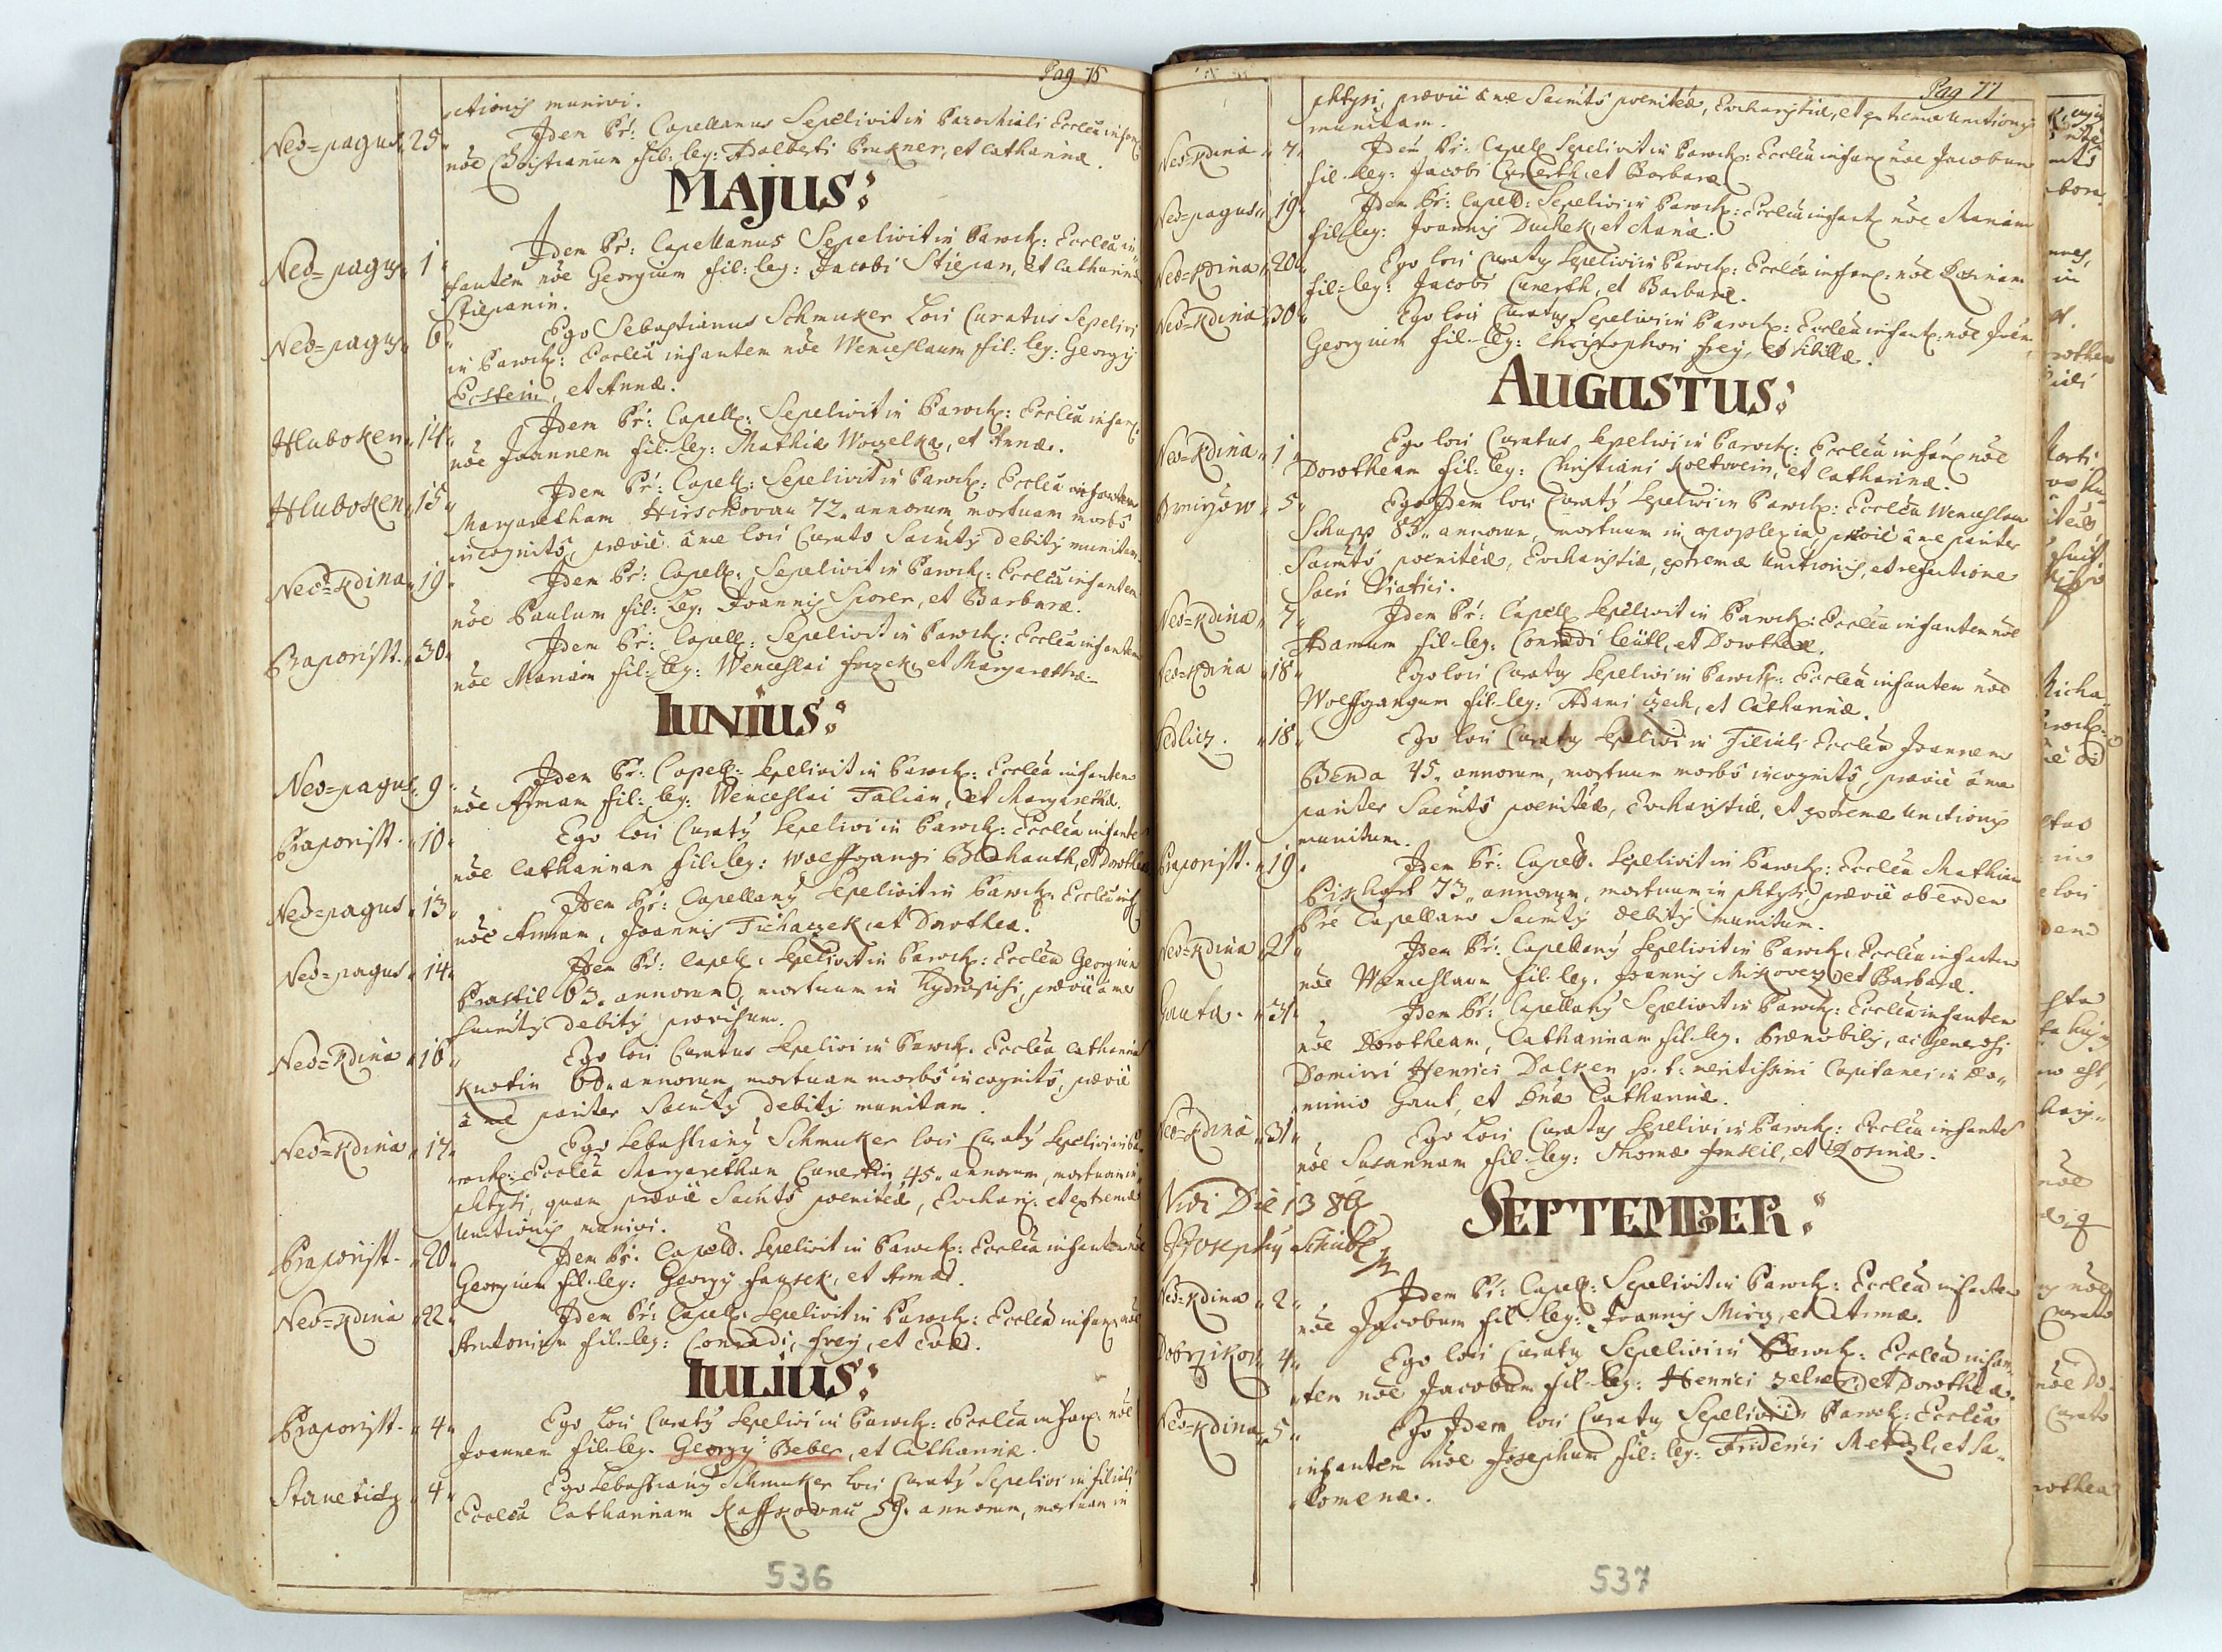 Pag 75
ctionis munivi.
Neo=pagus 25 Idem Pr: Capellanus Sepelivit in Parochiali Ecclea infan:
nõe Christianum fil: leg: Adalberti Prukner, et Catharinæ.
MAJUS:
Neo=pagus 1 Idem Pr: Capellanus Sepelivit in Paroch: Ecclea in=
fantem nõe Georgium fil: leg: Jacobi Stiepan, et Catharinæ
Stiepanin.
Neo=pagus 6 Ego Sebastianus Schmuker Loci Curatus Sepelivi
in Paroch: Ecclea infantem nõe Wenceslaum fil: leg: Georgij
Eckstein, et Annæ.
Hluboken 14 Idem Pr: Capell: Sepelivit in Paroch: Ecclea infan:
nõe Joannem fil: leg: Mathiæ Woyzelka, et Annæ.
Hluboken 15 Idem Pr: Capell: Sepelivit in Paroch: Ecclea infantem
Margaretham Hirschovan 72 annorum mortuam morbô
incognitô, præviè à me loci Curato Sacmtis debitis munitam.
Neo=Kdina 19 Idem Pr: Capell: Sepelivit in Paroch: Ecclea infantem
nõe Paulum fil: leg: Joannis Sporer, et Barbaræ.
Praporisst. 30 Idem Pr: Capell: Sepelivit in Paroch: Ecclea infantem
nõe Mariam fil: leg: Wenceslai et Margarethæ.
IUNIUS:
Neo=pagus 9 Idem Pr: Capell: Sepelivit in Paroch: Ecclea infantem
nõe Annam fil: leg: Wenceslai Talian, et Margarethæ.
Praporisst. 10 Ego loci Curatus Sepelivi in Paroch: Ecclea infantem
nõe Catharinam fil: leg: Wolffgangi et Dorotheæ
Neo=pagus 13 Idem Pr: Capellanus Sepelivit in Paroch: Ecclea inf:
nõe Annam, Joannis Tichaczek, et Dorothea.
Neo=pagus 14 Idem Pr: Capell: Sepelivit in Paroch: Ecclea Georgium
Prastil 63 annorum, mortuum in hydropisi, præviè à me
Sacmtis debitis provisum.
Neo=Kdina 16 Ego loci Curatus Sepelivi in Paroch: Ecclea Catharinam
Knotin 60 annorum mortuam morbô incognitô, præviè
à me pariter Sacmtis debitis munitam.
Neo=Kdina 17 Ego Sebastianus Schmuker loci Curatus Sepelivi in Pa
roch: Ecclea Margaretham Cunertin 45 annorum, mortuam in
phtysi, quam præviè Sacmtô pœnitæ, Euchari: et extremæ
Unctionis munivi.
Praporisst. 20 Idem Pr. Capell: Sepelivit in Paroch: Ecclea infantem nõe
Georgium fil: leg: Georgij Hansek, et Annæ.
Neo=Kdina 22 Idem Pr: Capell: Sepelivit in Paroch: Ecclea infan: nõe
Antonium fil: leg: Conradi Frey, et Evæ.
IULIUS:
Praporisst. 4 Ego Loci Curatus Sepelivi in Paroch: Ecclea infan: nõe
Joannem fil: leg. Georgij Beber, et Catharinæ.
Staneticz 4 Ego Sebastianus Schmuker loci Curatus Sepelivi in filiali
Ecclea Catharinam 59. annorum, mortuam in
536
Pag 77
phtysi, præviè à me Sacmtô pœnitæ, Eucharistiæ, et extremæ Unctionis
munitam.
Neo=Kdina 7 Idem Pr: Capell: Sepelivit in Paroch: Ecclea infan: nõe Jacobum
fil: leg: Jacobi Cunerth, et Barbaræ.
Neo=pagus 19 Idem Pr: Capell: Sepelivit in Paroch: Ecclea infant: nõe Mariam
fil: leg: Joannis Duchek, et Mariæ.
Neo=Kdina 20 Ego loci Curatus Sepelivi in Paroch: Ecclea infan: nõe Rosinam
fil: leg: Jacobi Cunerth, et Barbaræ.
Neo=Kdina 30 Ego loci Curatus Sepelivi in Paroch: Ecclea infant: nõe
Georgium fil: leg: Christophori Frey, et Sibillæ.
AUGUSTUS:
Neo=Kdina 1 Ego loci Curatus Sepelivi in Paroch: Ecclea infan: nõe
Dorotheam fil: leg: Christiani Koltvein, et Catharinæ.
5 Ego Idem loci Curatus Sepelivi in Paroch: Ecclea Wenceslaum
Schupp 85 annorum, mortuum in apoplexia, præviè à me pariter
Sacmtô pœnitæ, Eucharistiæ, extremæ Unctionis, et refectione
Sacri Viatici.
Neo=Kdina 7 Idem Pr: Capell: Sepelivit in Paroch: Ecclea infantem nõe
Adamum fil: leg: Conradi Leütl, et Dorotheæ.
Neo=Kdina 18 Ego loci Curatus Sepelivi in Paroch: Ecclea infantem nõe
Wolffgangum fil: leg: Adami Czech, et Catharinæ.
Sedlicz. 18 Ego loci Curatus Sepelivi in Filiali Ecclea Joannem
Benda 45. annorum, mortuum morbô incognitô, præviè à me
pariter Sacmtô pœnitæ, Eucharistiæ, et extremæ Unctionis
munitum.
Praporisst. 19 Idem Pr: Capell: Sepelivit in Paroch: Ecclea Mathiam
Pikhart 73 annorum, mortuum in phtysi, præviè ab eodem
Pre Capellano Sacmtis debitis munitum.
Neo=Kdina 21 Idem Pr: Capellanus Sepelivit in Paroch: Ecclea infantem
nõe Wenceslaum fil: leg: Joannis Mikovez et Barbaræ.
Gauta. 31 Idem Pr: Capellanus Sepelivit in Paroch: Ecclea infantem
nõe Dorotheam, Catharinam fil: leg. Prænobilis, ac Generosi
Domini Henrici Dalken p. t: meritissimi Capitanei in Do=
minio Gaut, et Dnæ Catharinæ.
Neo=Kdina 31 Ego Loci Curatus Sepelivi in Paroch: Ecclea infantem
nõe Susannam fil: leg: Thomæ et Rosinæ.
Vidi Die 13 8b
Josephus
SEPTEMBER:
Neo=Kdina 2 Idem Pr: Capell: Sepelivit in Paroch: Ecclea infantem
nõe Jacobum fil: leg: Joannis Miriz, et Annæ.
Dobrzikow 4 Ego loci Curatus Sepelivi in Paroch: Ecclea infan=
tem nõe Jacobum fil: leg: Henrici et Dorotheæ.
Neo=Kdina 5 Ego Idem loci Curatus Sepelivi in Paroch: Ecclea
infantem nõe Josephum fil: leg: Friderici Metzl, et Sa=
lomenæ.
537